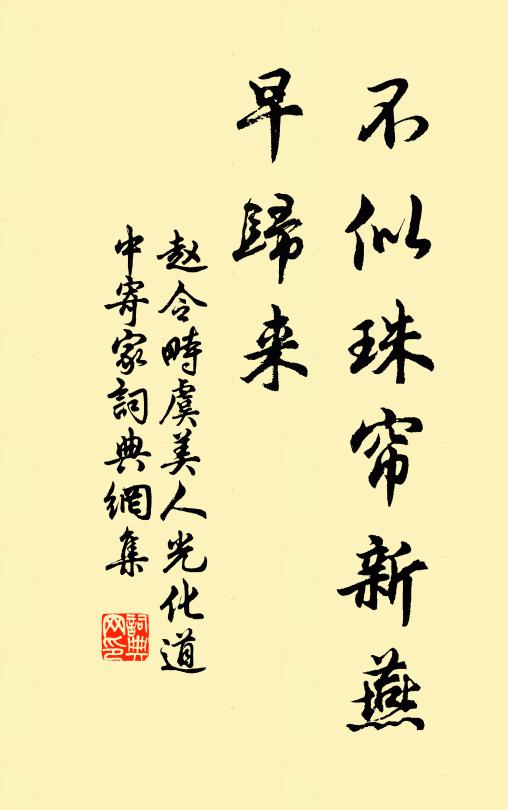 不似珠帘新燕
早歸来
赵令畤虞美人光化道
中寄家詞典網集
詞典
网印